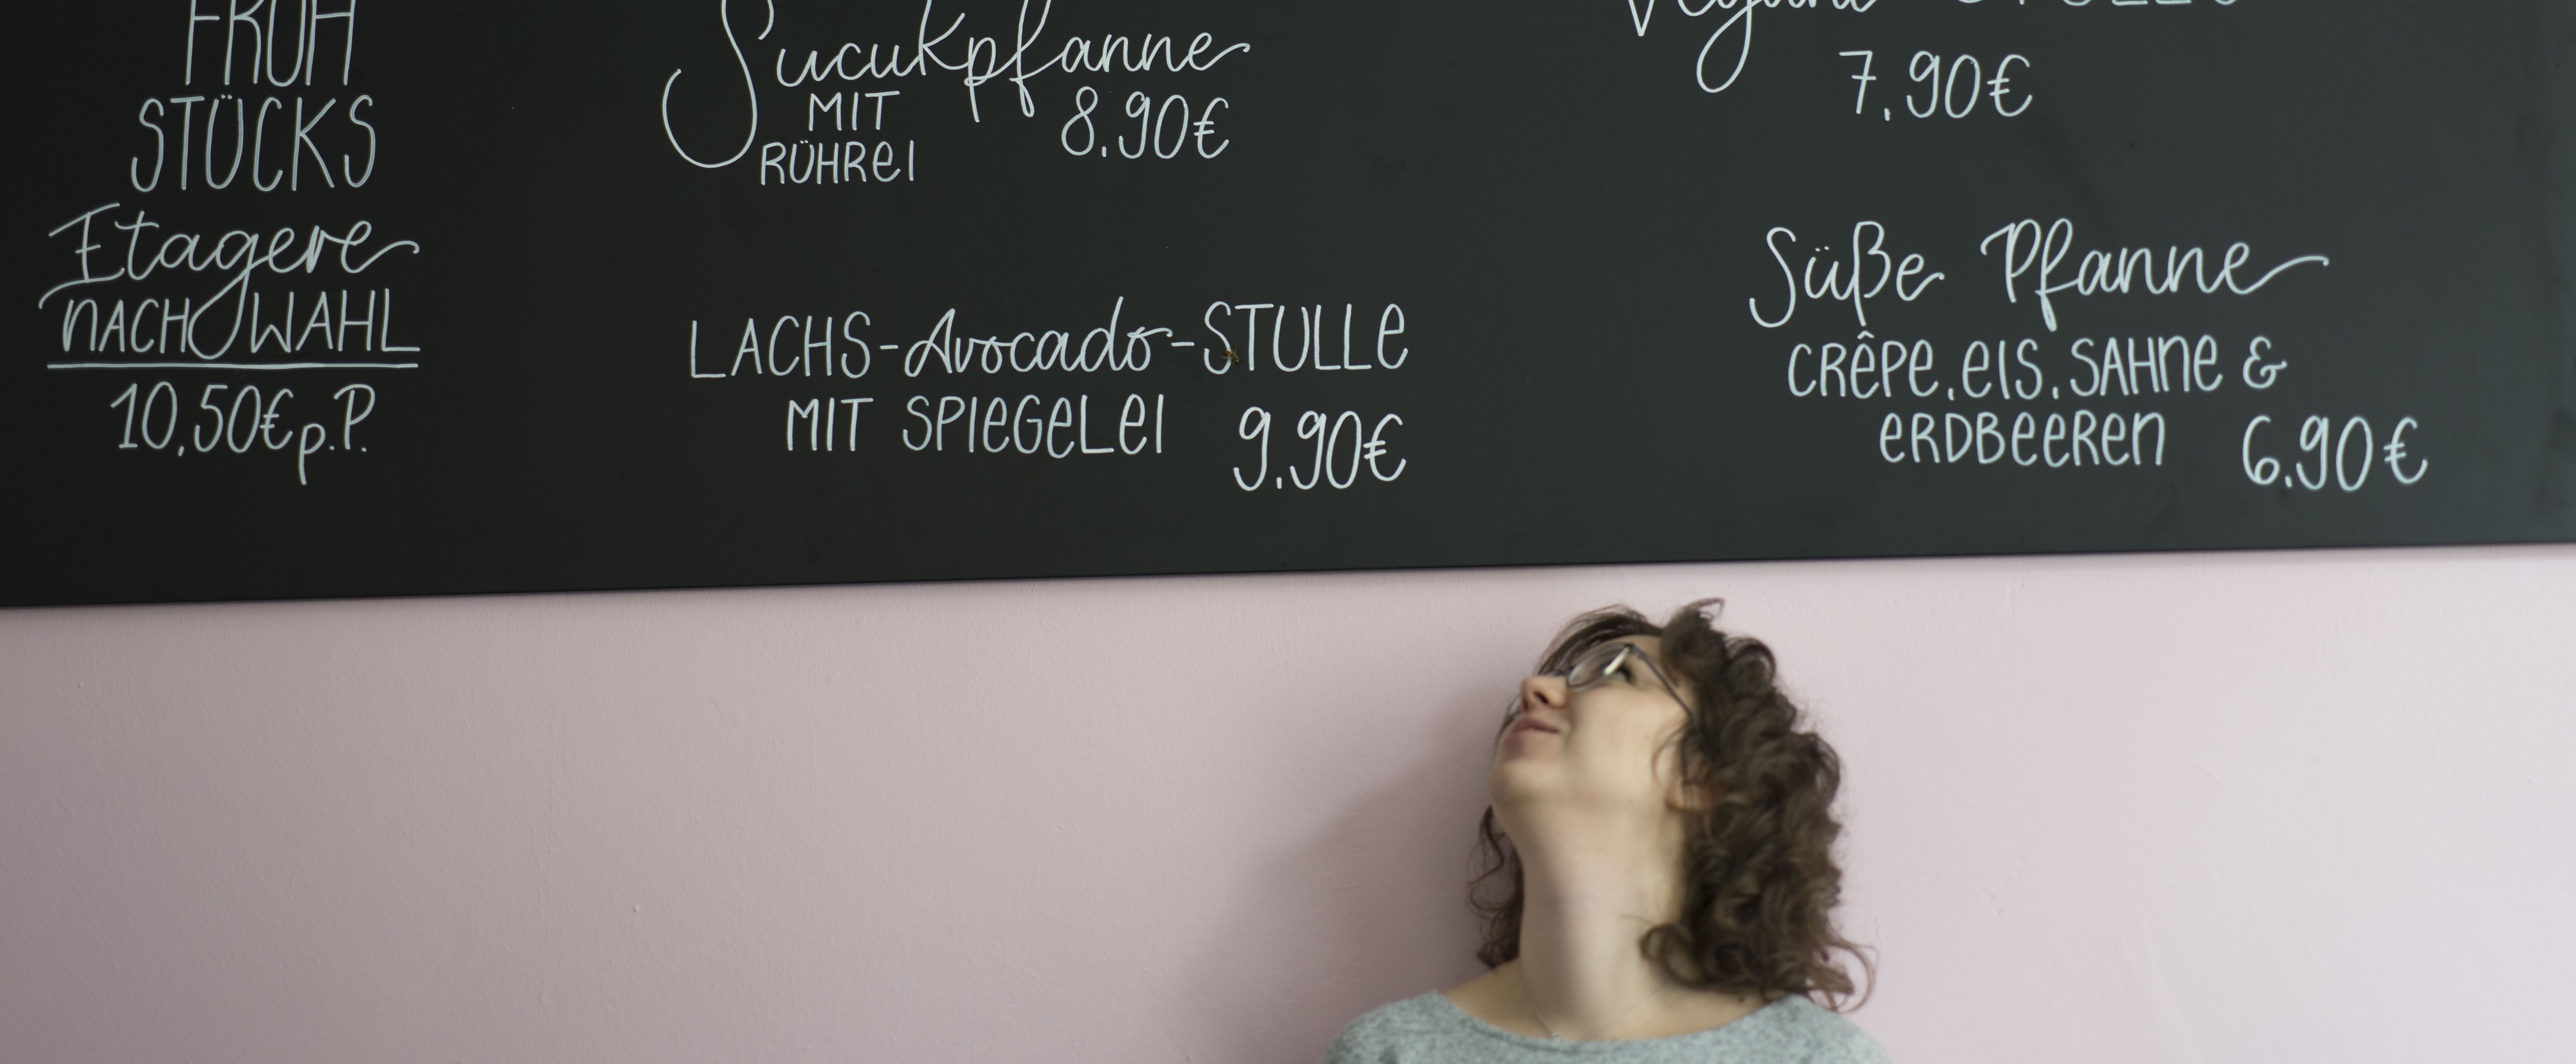 FRÜH
STÜCKS
Etagere
NACH WAHL
10,50€ p.P.
Sucukpfanne
MIT
RÜHREI
8.90€
LACHS-Avocado-STULLE
MIT SPIEGELEI
9.90€
Vegane STULLE
7.90€
Süße Pfanne
CRÊPE, EIS, SAHNE &
ERDBEEREN
6.90€